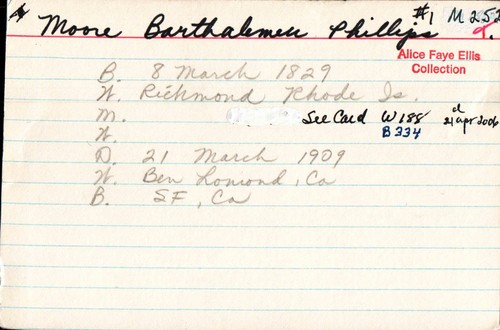 #1 M252
Moore Barthalemew Phillips
Alice Faye Ellis
Collection
B. 8 March 1829
W. Richmond Rhode Is.
M. See Card W188
W. B334 21 apr 2006
D. 21 March 1909
W. Ben Lomond, Ca
B. SF, Ca